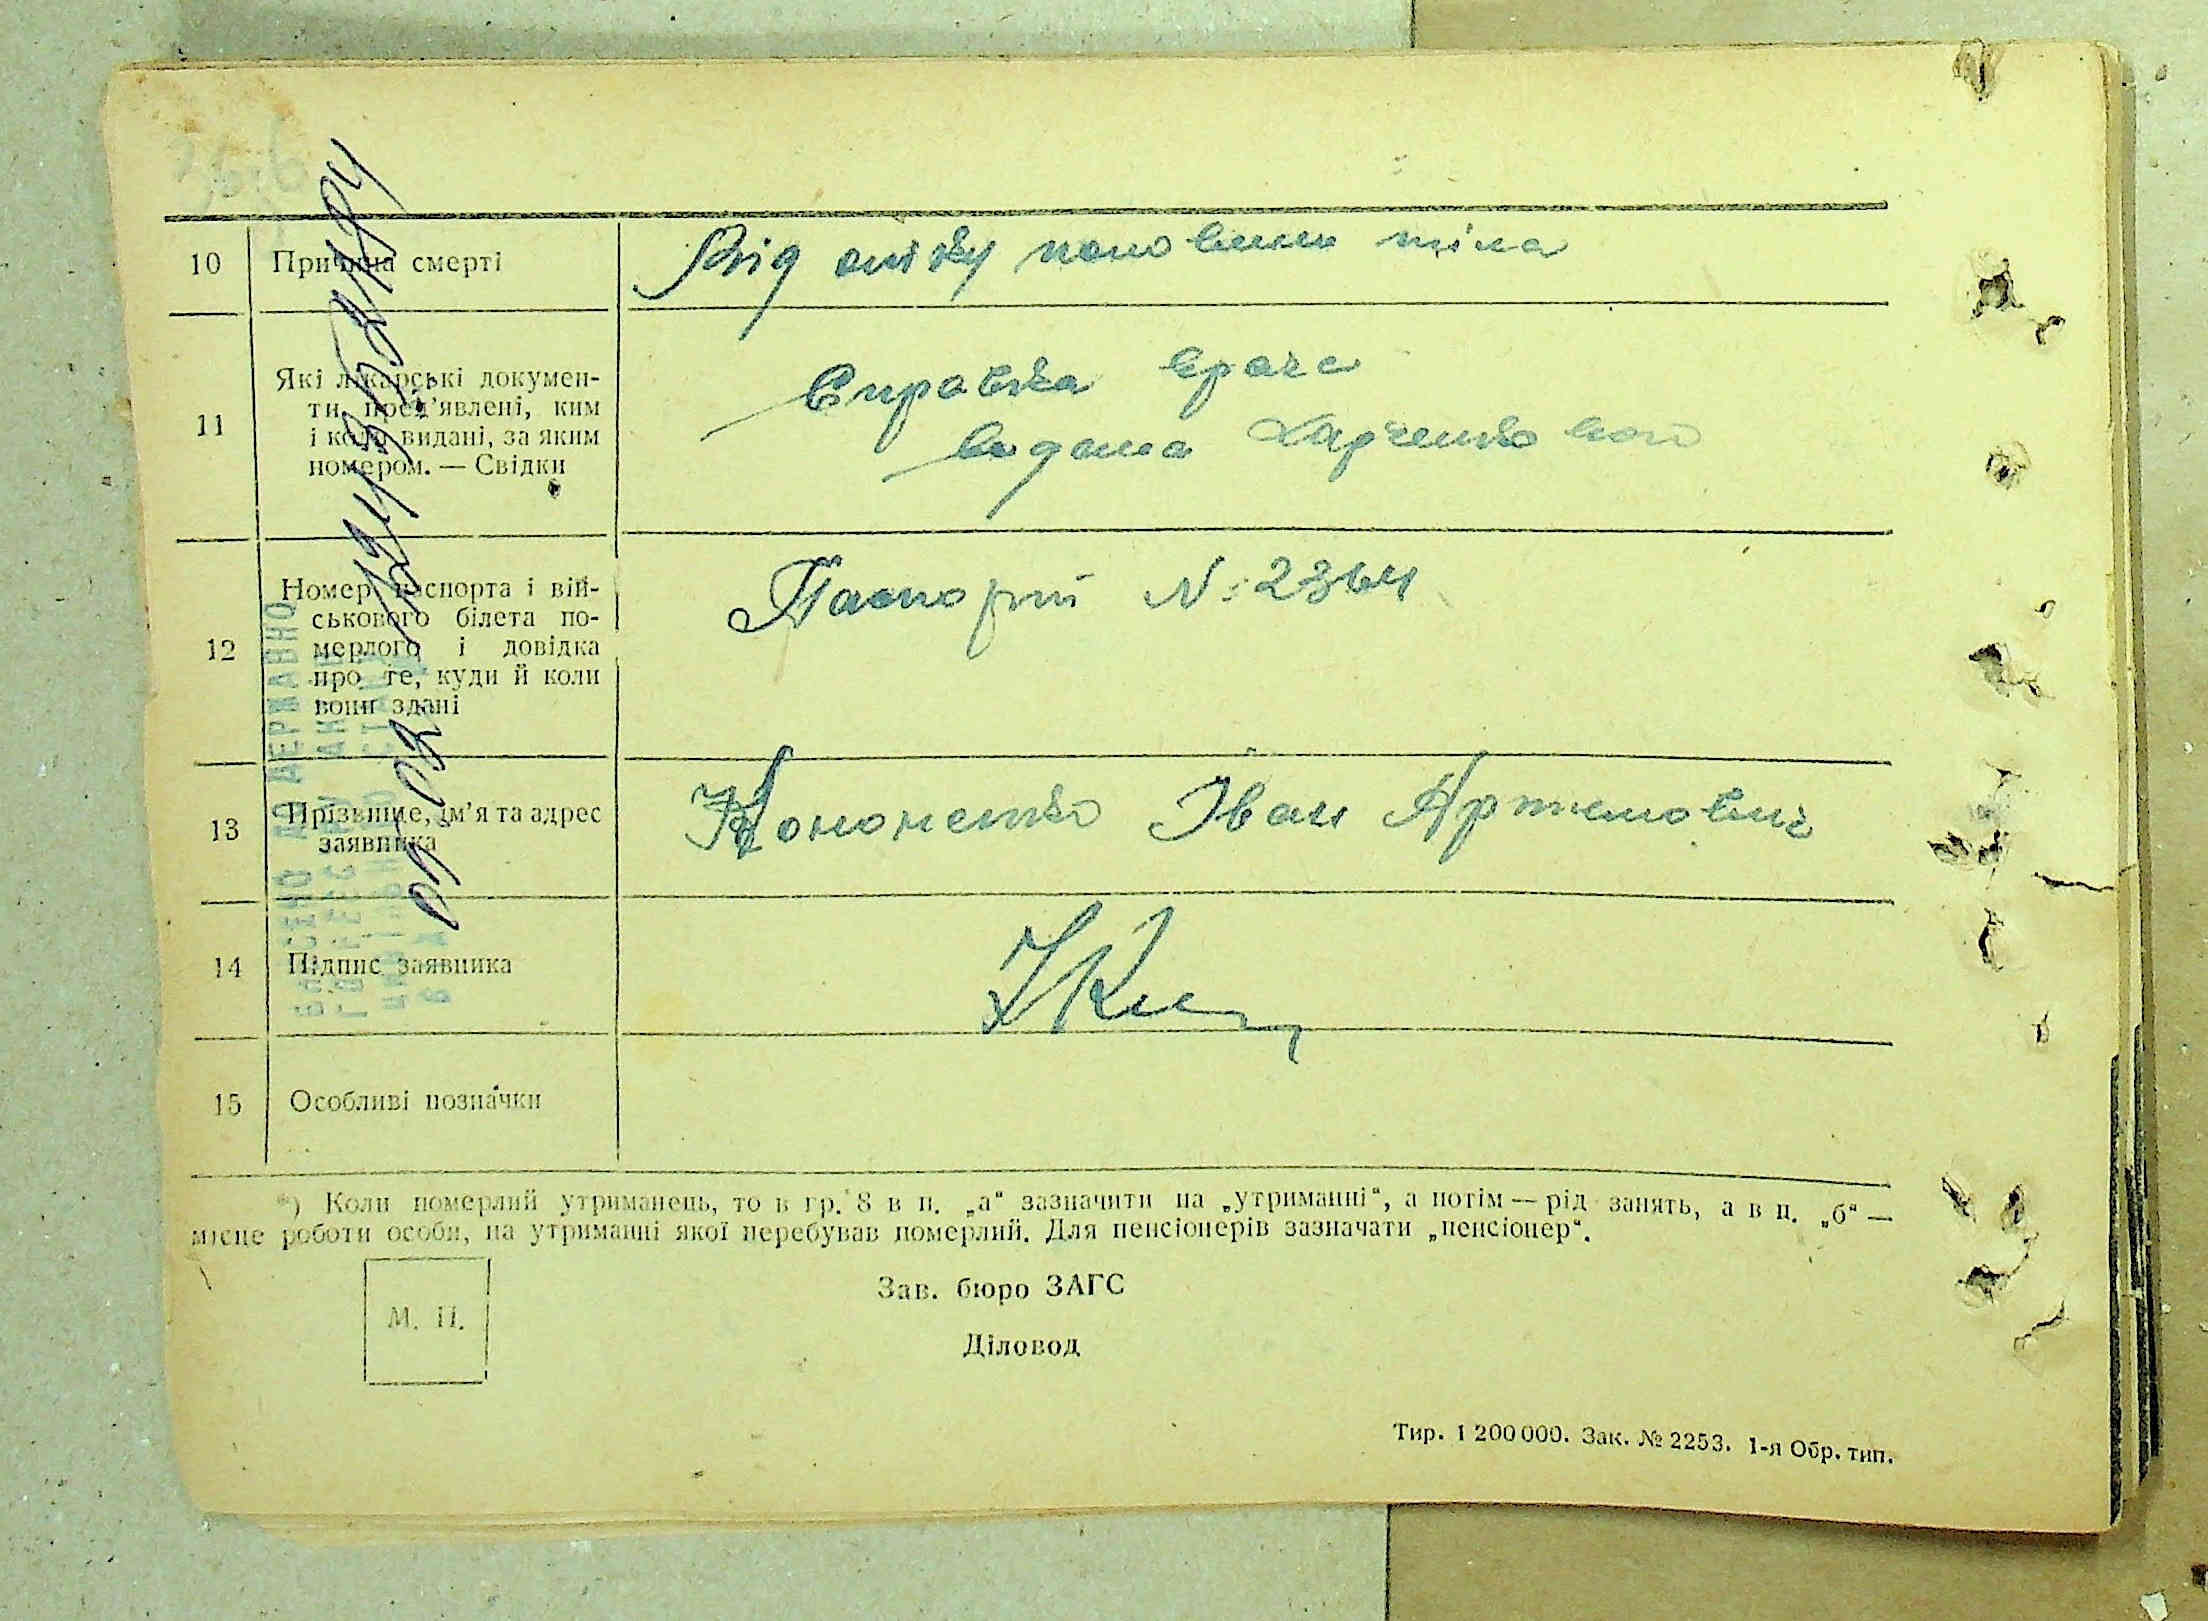 10 Причина смерті Від опіку половини тіла
11 Які лікарські докумен-
ти пред'явлені, ким
і коли видані, за яким
номером. — Свідки
Справка врача
видана Харченковою
12 Номер паспорта і вій-
ськового білета по-
мерлого і довідка
про те, куди й коли
вони здані
Паспорт №: 2364
13 Прізвище, ім'я та адрес
заявника
Кононенко Іван Артемович
14 Підпис заявника
15 Особливі позначки
*) Коли померлий утриманець, то в гр. 8 в п. „а“ зазначити на „утриманні“, а потім — рід занять, а в п. „б“ —
місце роботи особи, на утриманні якої перебував померлий. Для пенсіонерів зазначати „пенсіонер“.
М. П.
Зав. бюро ЗАГС
Діловод
Тир. 1 200 000. Зак. № 2253. 1-я Обр. тип.
ВНЕСЕНО ДО ДЕРЖАВНО